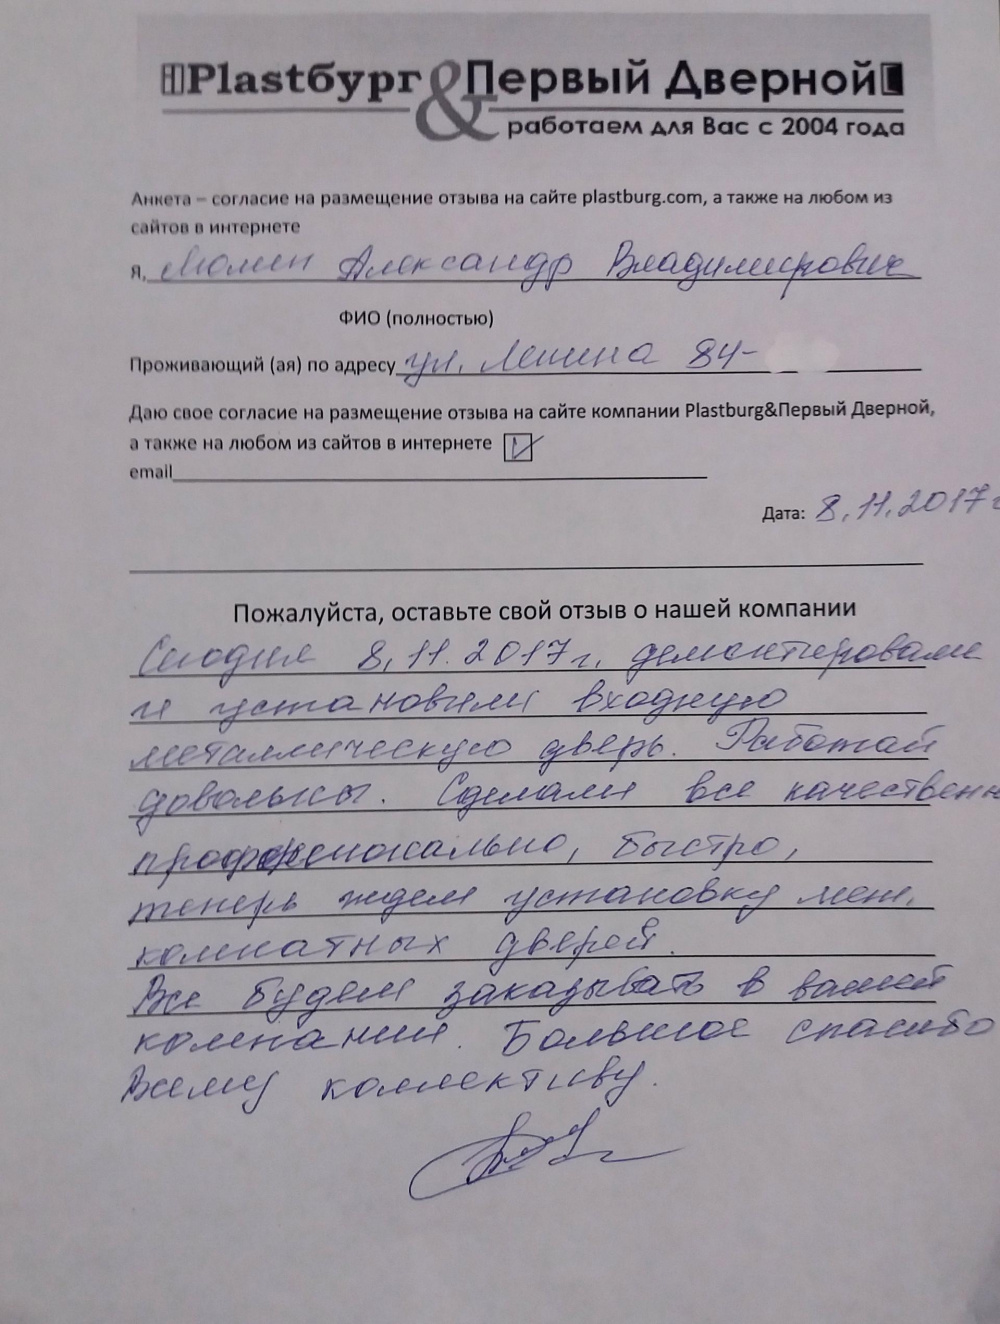 Plastбург & Первый Дверной
работаем для Вас с 2004 года
Анкета – согласие на размещение отзыва на сайте plastburg.com, а также на любом из
сайтов в интернете
Я, Александр Владимирович
ФИО (полностью)
Проживающий (ая) по адресу ул. Ленина 84-
Даю свое согласие на размещение отзыва на сайте компании Plastburg&Первый Дверной,
а также на любом из сайтов в интернете
email
Дата: 8.11.2017г
Пожалуйста, оставьте свой отзыв о нашей компании
Сегодня 8.11.2017г. демонтировали
и установили входную
металлическую дверь. Работой
довольны. Сделали все качественн
профессионально, быстро,
теперь ждем установку меж.
комнатных дверей.
Все будем заказывать в вашей
компании. Большое спасибо
Всему коллективу.